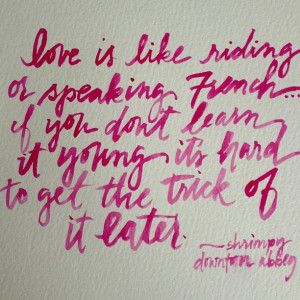 love is like riding
or speaking French...
if you don't learn
it young it's hard
to get the trick of
it later.
~shrimpy
downton abbey